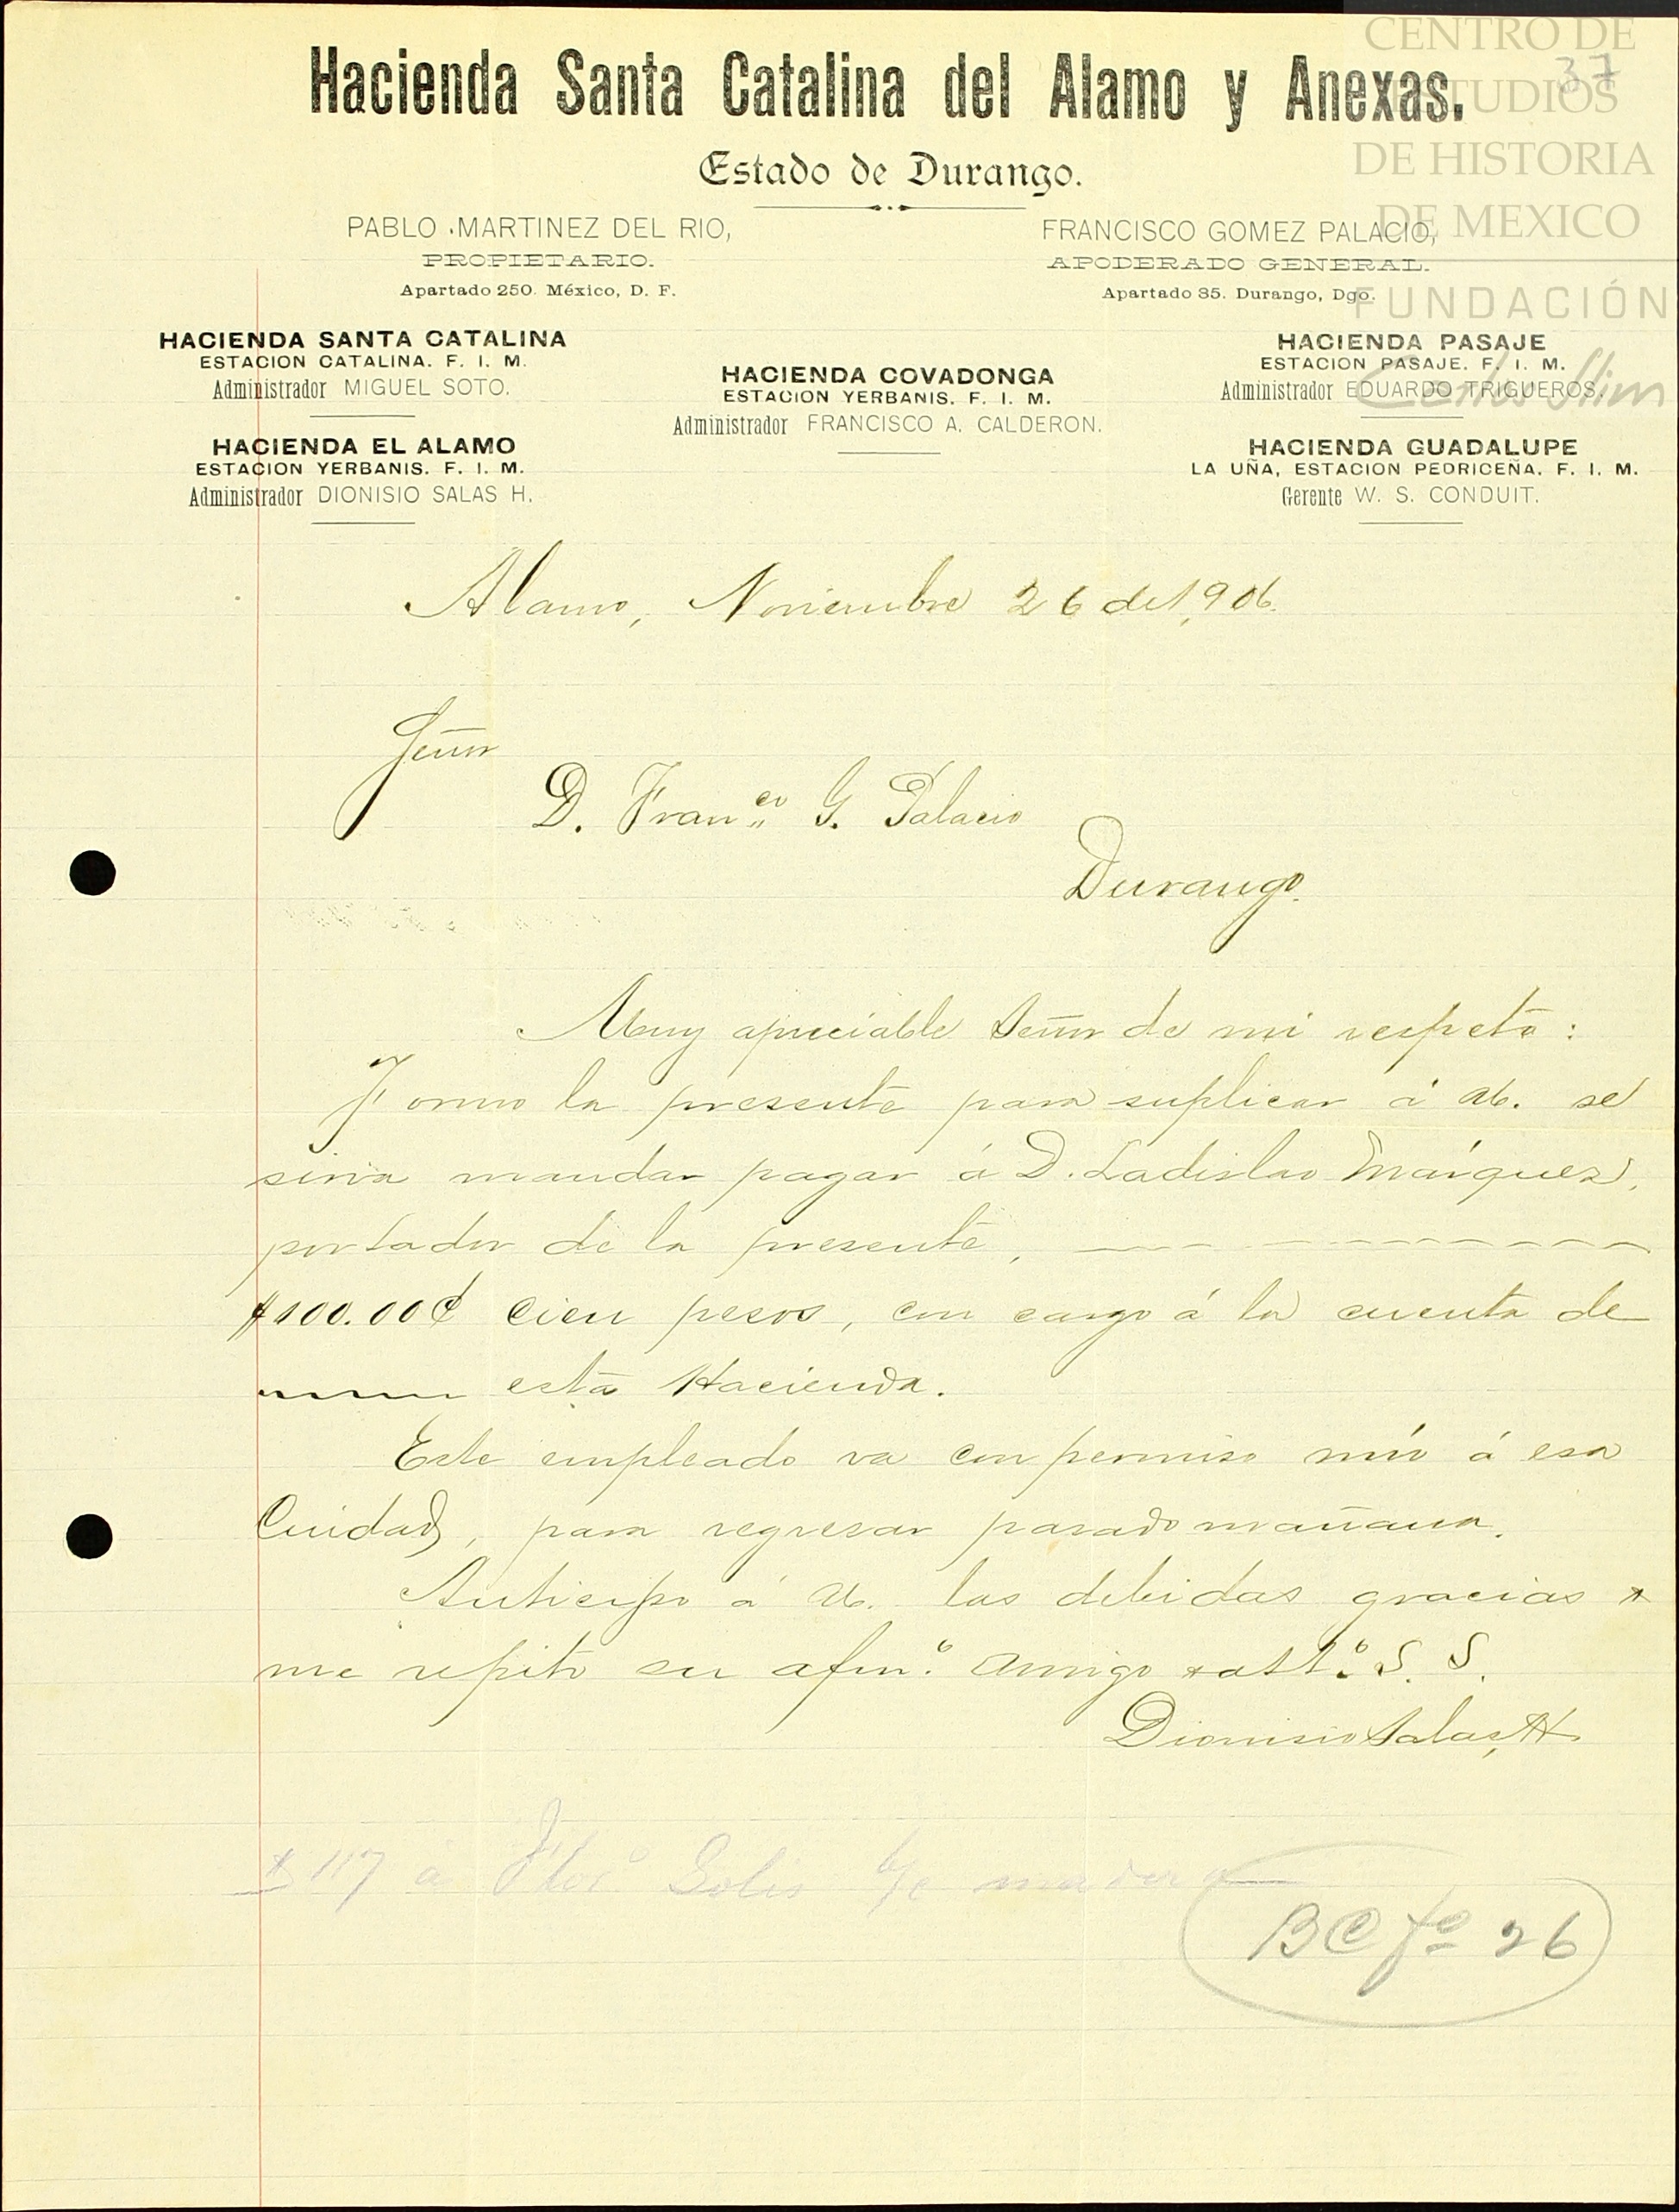 37
CENTRO DE
ESTUDIOS
DE HISTORIA
DE MEXICO
FUNDACIÓN
Carlos Slim
Hacienda Santa Catalina del Alamo y Anexas.
Estado de Durango.
PABLO MARTINEZ DEL RIO,
PROPIETARIO.
Apartado 250. México, D. F.
FRANCISCO GOMEZ PALACIO,
APODERADO GENERAL.
Apartado 35. Durango, Dgo.
HACIENDA SANTA CATALINA
ESTACION CATALINA. F. I. M.
Administrador MIGUEL SOTO.
HACIENDA EL ALAMO
ESTACION YERBANIS. F. I. M.
Administrador DIONISIO SALAS H.
HACIENDA COVADONGA
ESTACION YERBANIS. F. I. M.
Administrador FRANCISCO A. CALDERON.
HACIENDA PASAJE
ESTACION PASAJE. F. I. M.
Administrador EDUARDO TRIGUEROS.
HACIENDA GUADALUPE
LA UÑA, ESTACION PEDRICEÑA. F. I. M.
Gerente W. S. CONDUIT.
Alamo, Noviembre 26 de 1,906.
Señor
D. Fran.co G. Palacio
Durango.
Muy apreciable Señor de mi respeto:
Formo la presente para suplicar á Ud. se
sirva mandar pagar á D. Ladislao Márquez,
portador de la presente,
$100.00¢ cien pesos, con cargo á la cuenta de
esta Hacienda.
Este empleado va con permiso mío á esa
Ciudad, para regresar pasado mañana.
Anticipo á Ud. las debidas gracias y
me repito su afmo. amigo y atto. S. S.
Dionisio Salas H.
$117 a Flor.o Solis c/c madera
BC fo 26